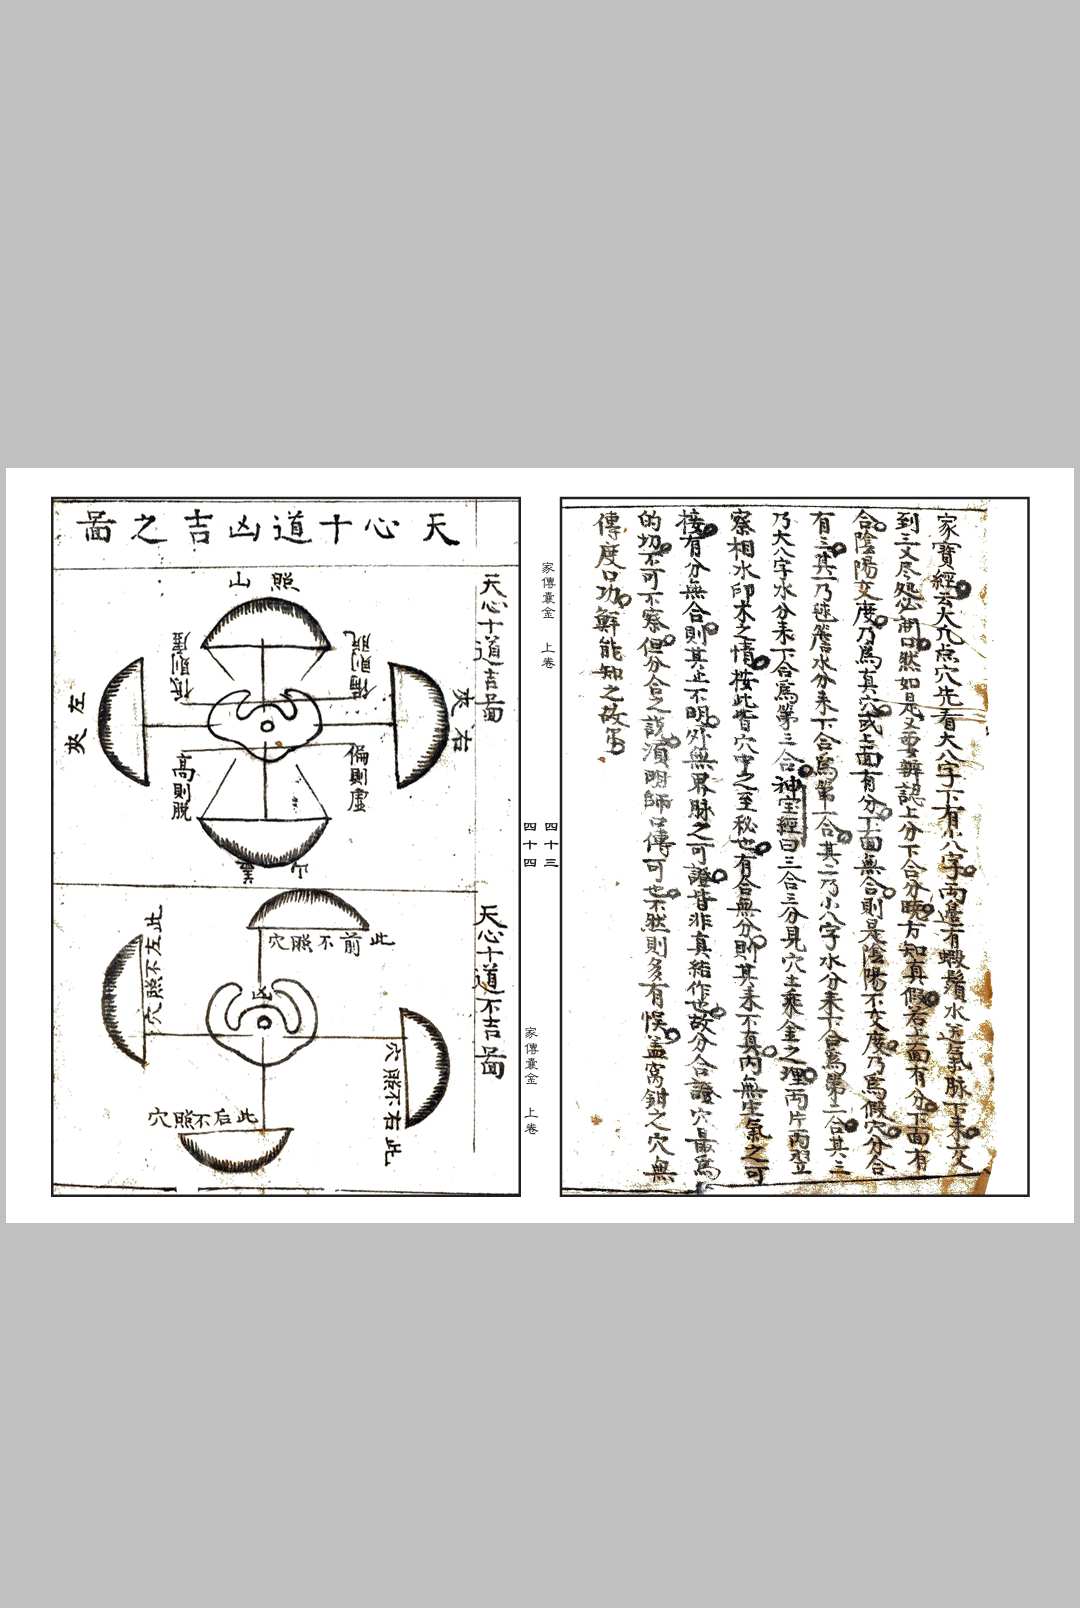 家寶經云大凢点穴先看大八字下有小八字兩邉有蝦鬚水送氣脉下来交
到三叉尽処必開口然如是又要辨認上分下合分曉方知真假若上面有分下面有
合陰陽交度乃為真穴或上面有分下面無合則是陰陽不交度乃為假穴分合
有三其一乃毬簷水分来下合為第一合其二乃小八字水分来下合為第二合其三
乃大八字水分来下合為第三合神宝經曰三合三分見穴土乘金之理两片两翌
察相水印木之情按此皆穴中之至秘也有合無分則其来不真内無生氣之可
接有分無合則其止不明外無界脉之可證皆非真結作也故分合證穴最為
的切不可不察但分合之説須明師口傳可也不然則多有悮盖窝鉗之穴無
傳度口功觧能知之故
家傳囊金 上卷
四十三
四十四
家傳囊金 上卷
天心十道凶吉之啚
天心十道吉啚
照山
右夾
左夾
偏則脱
低則虚
偏則虚
高則脱
天心十道不吉啚
此前不照穴
此左不照穴
凶
此右不照穴
此后不照穴